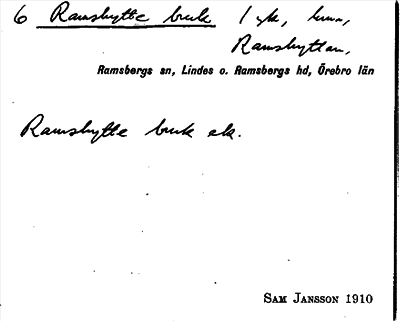 6 Ramshytte bruk 1 yk, hmn,
Ramshyttan,
Ramsbergs sn, Lindes o. Ramsbergs hd, Örebro län
Ramshytte bruk ek.
Sam Jansson 1910